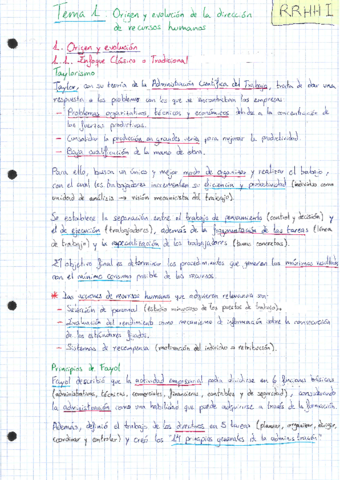 Tema 1. Origen y evolución de la dirección
de recursos humanos
RRHH I
1. Origen y evolución
1.1. Enfoque Clásico o Tradicional
Taylorismo
Taylor, con su teoría de la Administración Científica del Trabajo, trata de dar una
respuesta a los problemas con los que se encontraban las empresas
- Problemas organizativos, técnicos y económicos debidos a la concentración de
las fuerzas productivas.
- Consolidar la producción en grandes series para mejorar la productividad
- Baja cualificación de la mano de obra.
Para ello, buscan un único y mejor modo de organizar y realizar el trabajo,
con el cual los trabajadores incrementarían su eficiencia y productividad (individuo como
unidad de análisis → visión mecanicista del trabajo).
Se establece la separación entre el trabajo de pensamiento (control y decisión) y
el de ejecución (trabajadores), además de la fragmentación de las tareas (línea
de trabajo) y la especialización de los trabajadores (tarea concreta).
El objetivo final es determinar los procedimientos que generen los máximos resultados
con el mínimo consumo posible de los recursos.
* Las acciones de recursos humanos que adquieren relevancia son:
- Selección de personal (estudio minucioso de los puestos de trabajo).
- Evaluación del rendimiento como mecanismo de información sobre la consecución
de los estándares fijados.
- Sistemas de recompensa (motivación del individuo a retribución).
Principios de Fayol
Fayol describió que la actividad empresarial podía dividirse en 6 funciones básicas
(administrativas, técnicas, comerciales, financieras, contables y de seguridad), considerando
la administración como una habilidad que puede adquirirse a través de la formación.
Además, definió el trabajo de los directivos en 5 tareas (planear, organizar, dirigir,
coordinar y controlar) y creó los "14 principios generales de la administración"